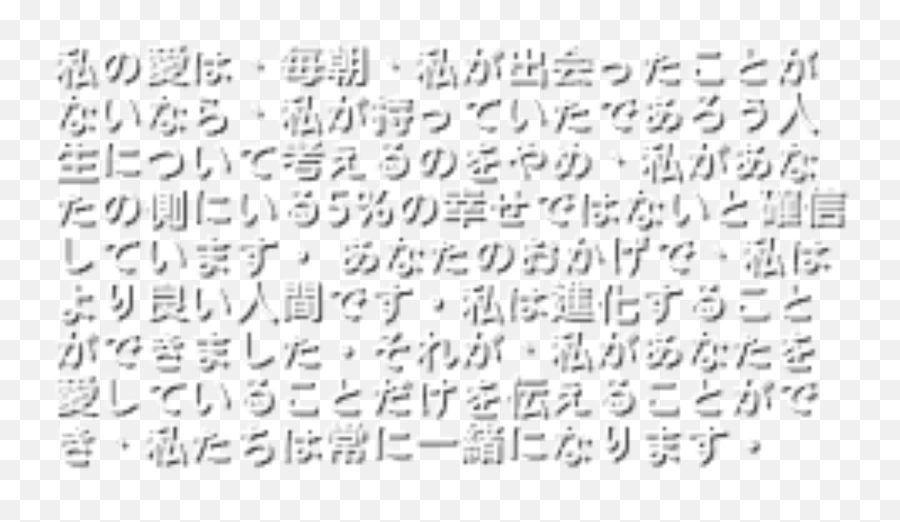 私の愛は・毎朝・私が出会ったことが
ないなら・私が持っていたであろう人
生について考えるのをやめ・私があな
たの側にいる5%の幸せではないと確信
しています・ あなたのおかげで・私は
より良い人間です・私は進化すること
ができました・それが・私があなたを
愛していることだけを伝えることがで
き・私たちは常に一緒になります・